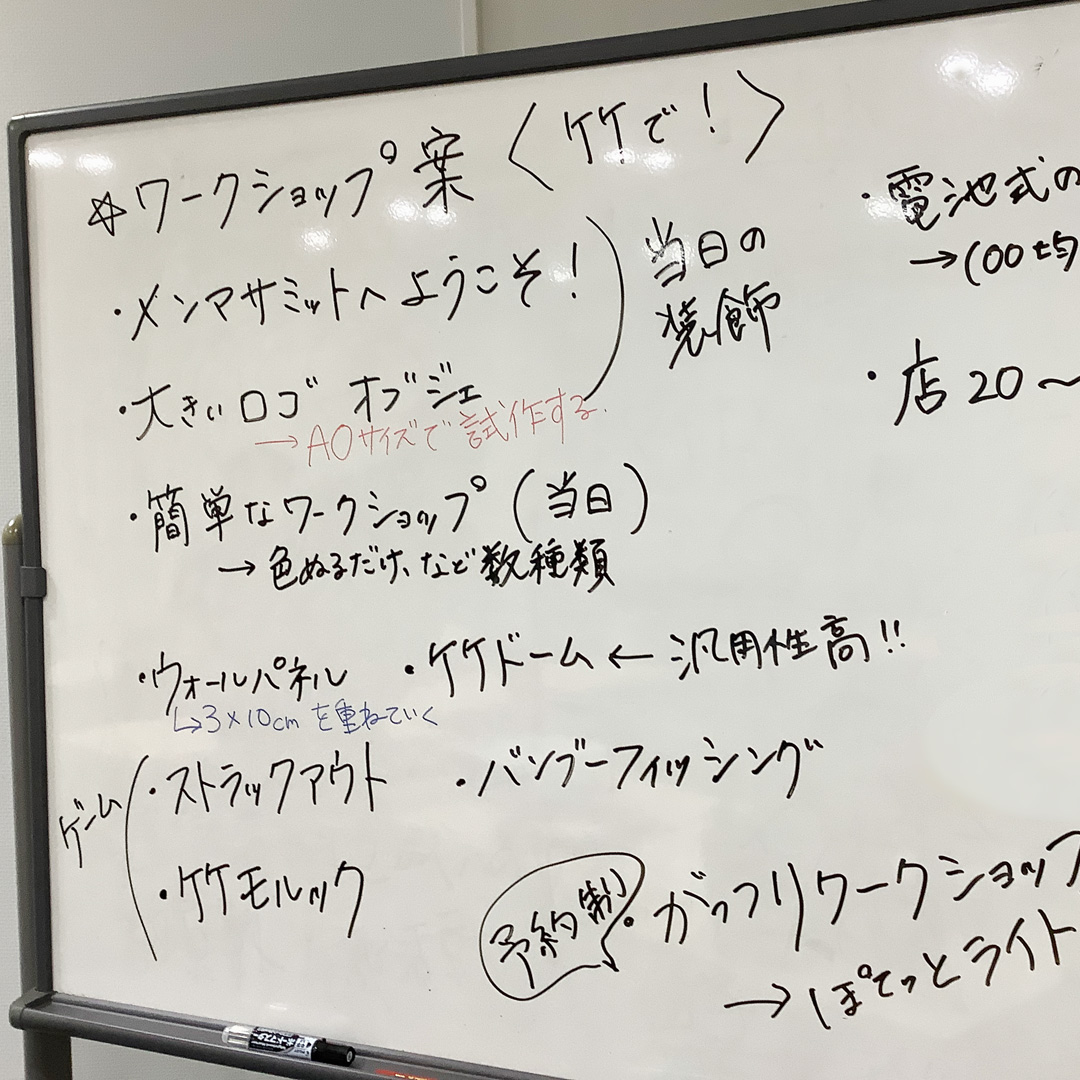 ☆ワークショップ案 〈竹で！〉
・メンマサミットへようこそ！
・大きいロゴ オブジェ
当日の
装飾
→A0サイズで試作する.
・簡単なワークショップ（当日）
→色ぬるだけ、など数種類
・ウォールパネル
↳3×10cmを重ねていく
・竹ドーム ← 汎用性高!!
ゲーム
・ストラックアウト
・バンブーフィッシング
・竹モルック
予約制
・がっつりワークショップ
→ぽてっとライト
・電池式の
→100均
・店20〜
ボードマスター